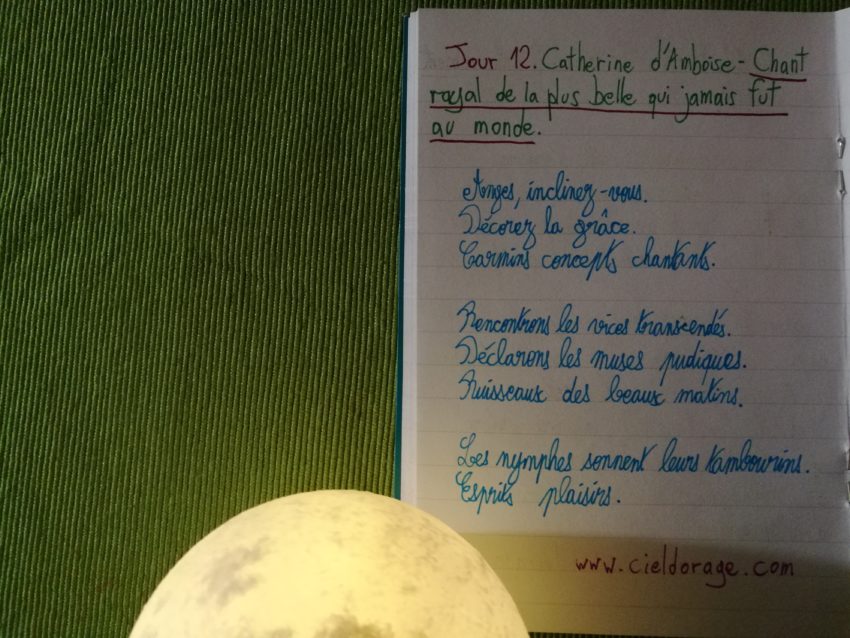 Jour 12. Catherine d'Amboise - Chant
royal de la plus belle qui jamais fut
au monde.
Anges, inclinez-vous.
Décorez la grâce.
Carmins concepts chantants.
Rencontrons les vices transcendés.
Déclarons les muses pudiques.
Ruisseaux des beaux matins.
Les nymphes sonnent leurs tambourins.
Esprits plaisirs.
www.cieldorage.com